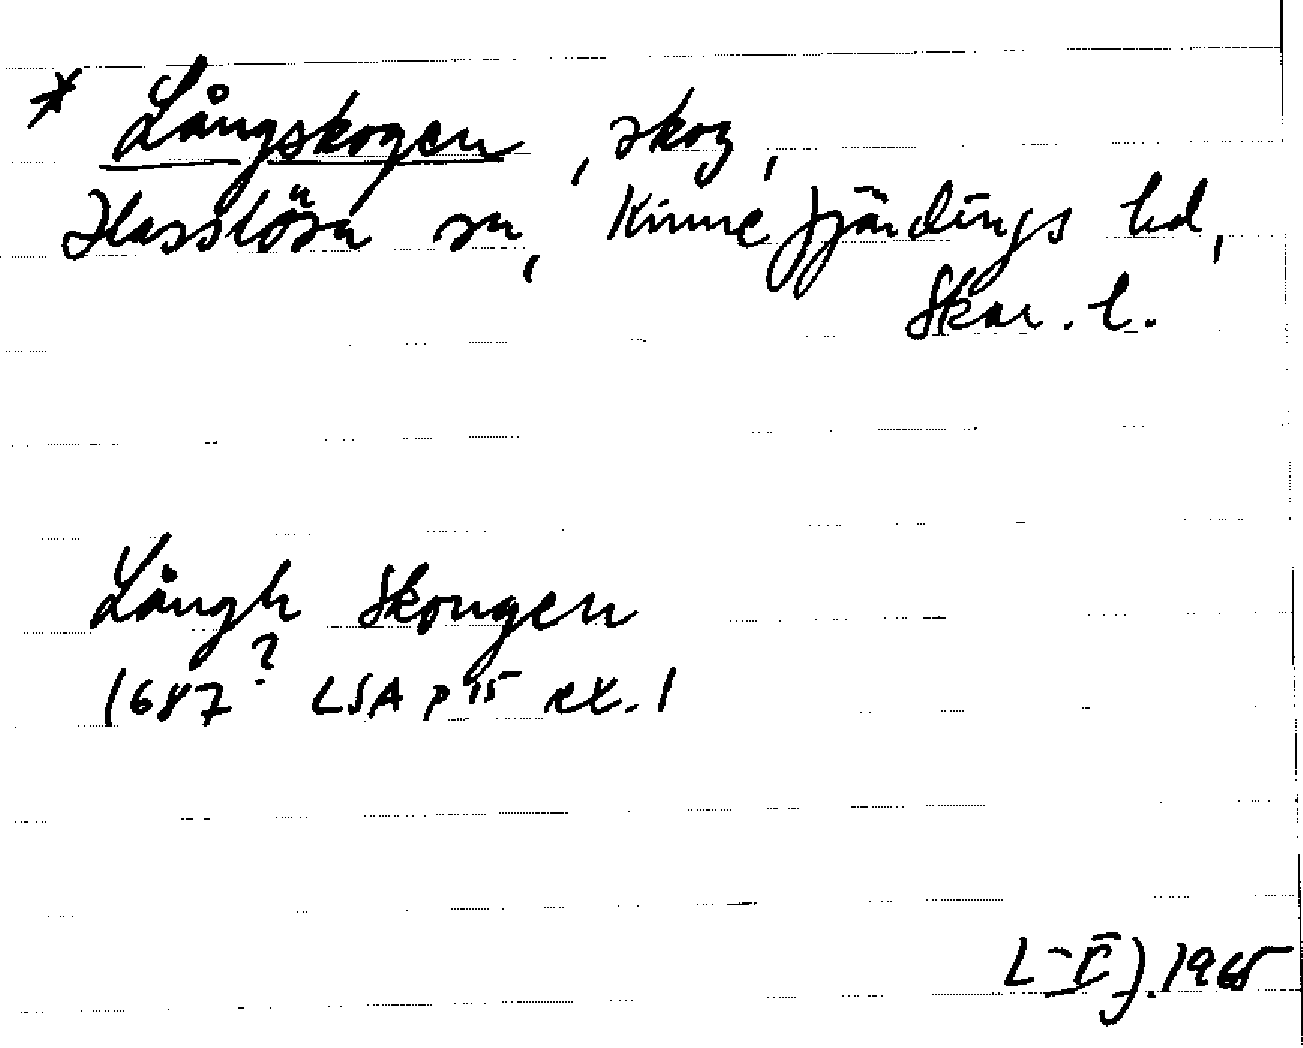 * Långskogen, skog,
Hasslösa sn, Kinnefjärdings hd,
Skar. l.
Långh Skougen
1687? LSA p 15 ex. 1
1965